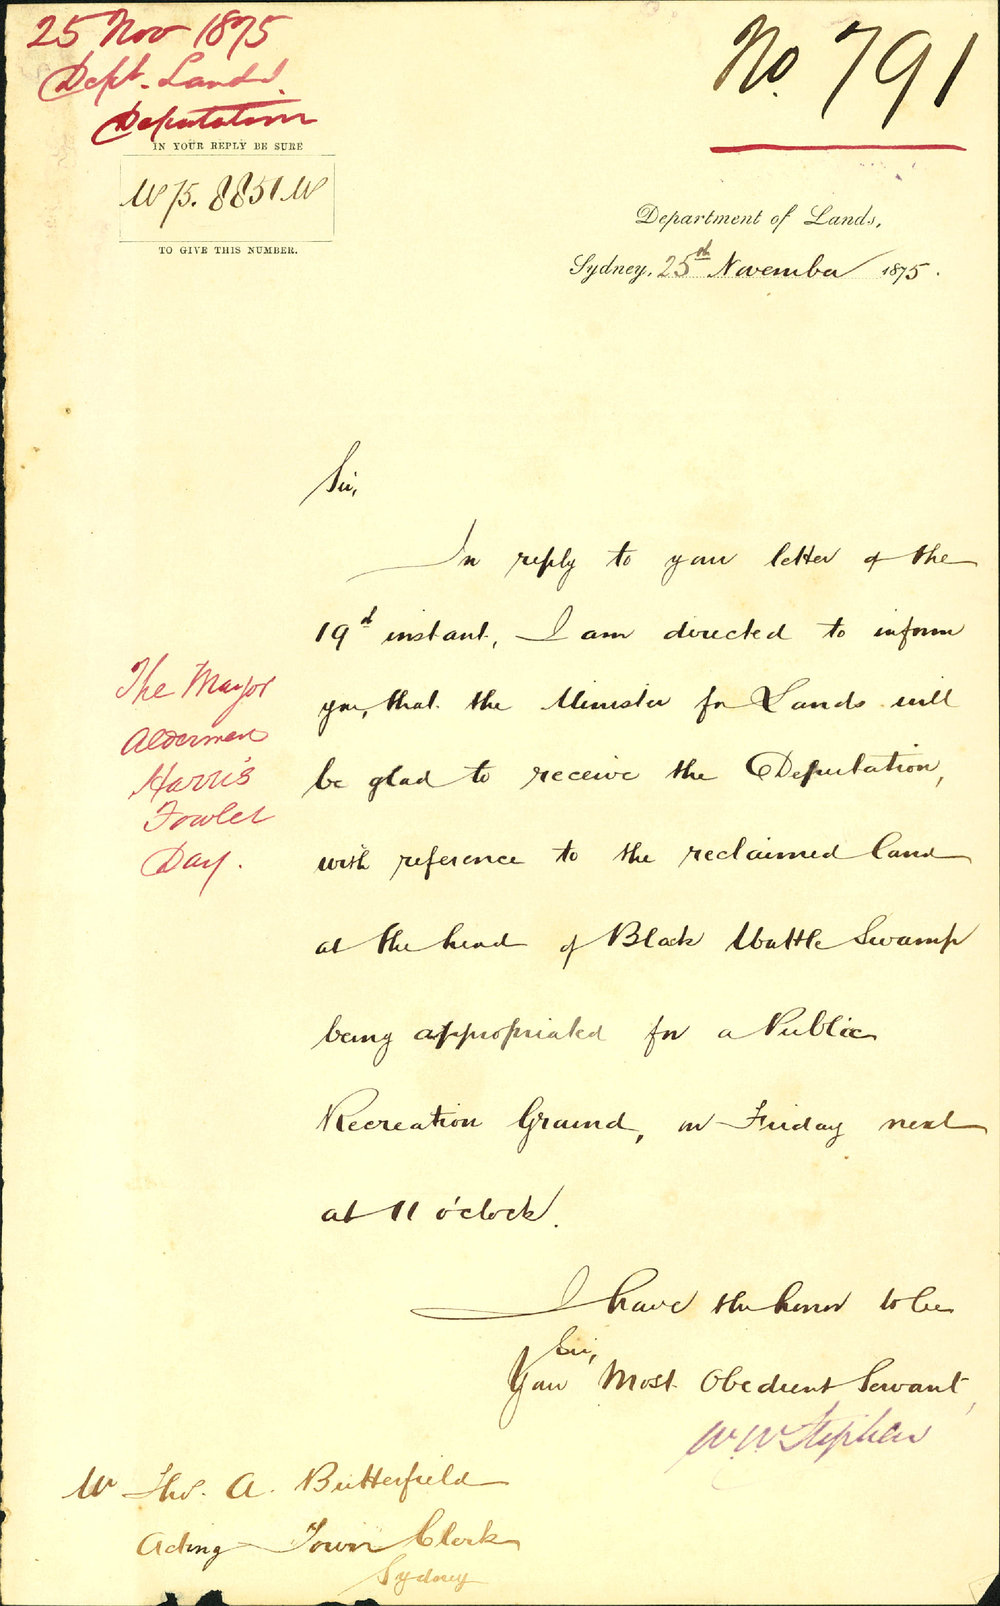 25 Nov 1875
Dept. Lands.
Deputation
No. 791
IN YOUR REPLY BE SURE
M 75. 8851 M
TO GIVE THIS NUMBER.
Department of Lands,
Sydney, 25th November 1875.
Sir,
In reply to your letter of the
19th instant, I am directed to inform
you, that the Minister for Lands will
be glad to receive the Deputation,
with reference to the reclaimed land
at the head of Black Wattle Swamp
being appropriated for a Public
Recreation Ground, on Friday next
at 11 o'clock.
The Mayor
Aldermen
Harris
Fowler
Day.
I have the honor to be
Sir,
Your Most Obedient Servant,
W. W. Stephen
Mr Thos. A. Butterfield
Acting Town Clerk
Sydney